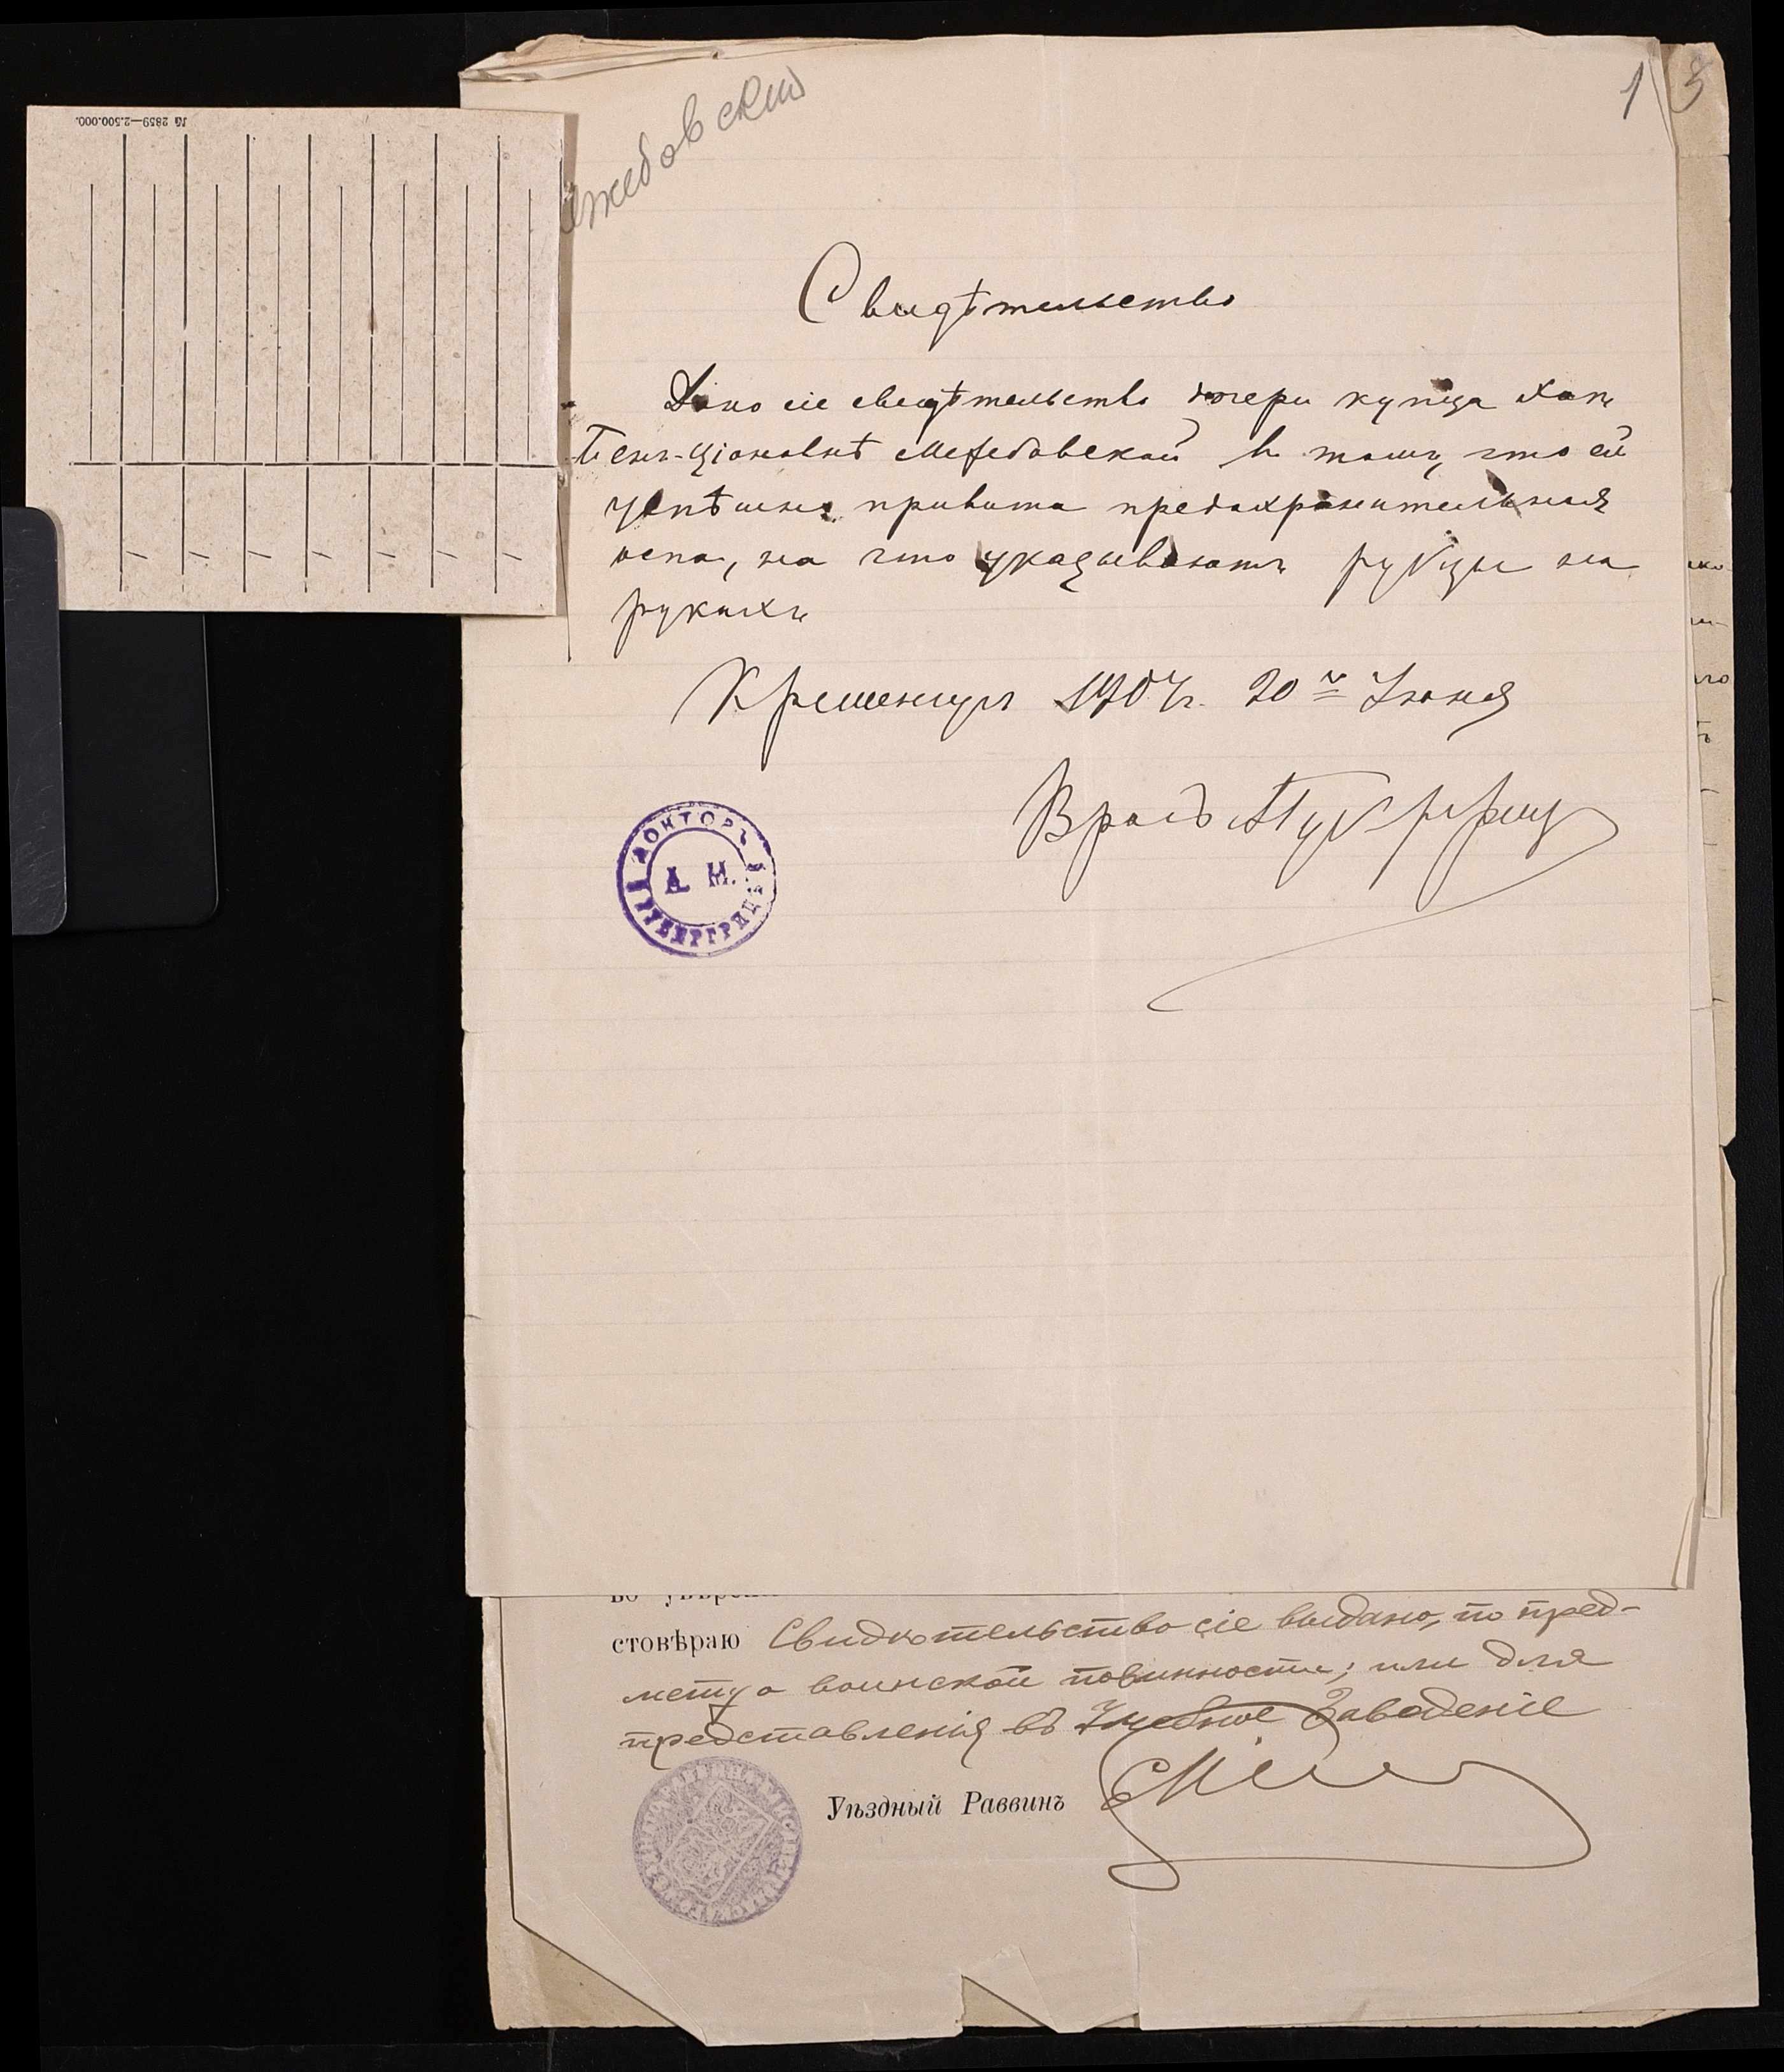 № 2859—2.500.000.
1
3
Свидѣтельство
Дано сіе свидѣтельство дочери купца Ханѣ
Бенъ-Ціоновнѣ Межебовской въ томъ, что ей
успѣшно привита предохранительная
оспа, на что указываютъ рубцы на
рукахъ
Кременчугъ 190 г. 20 Іюня
Врачъ
ДОКТОРЪ
А. М.
стовѣраю Свидѣтельство сіе выдано, по пред-
мету о воинской повинности; или для
представленія въ Учебное Заведеніе
Уѣздный Раввинъ